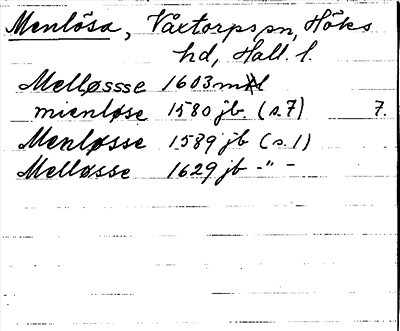 Menlösa, Våxtorps sn, Höks
hd, Hall. l.
Melløssse 1603 mtl
mienløse 1580 jb. (s. 7) 7.
Menløsse 1589 jb (s. 1)
Melløsse 1629 jb -"-